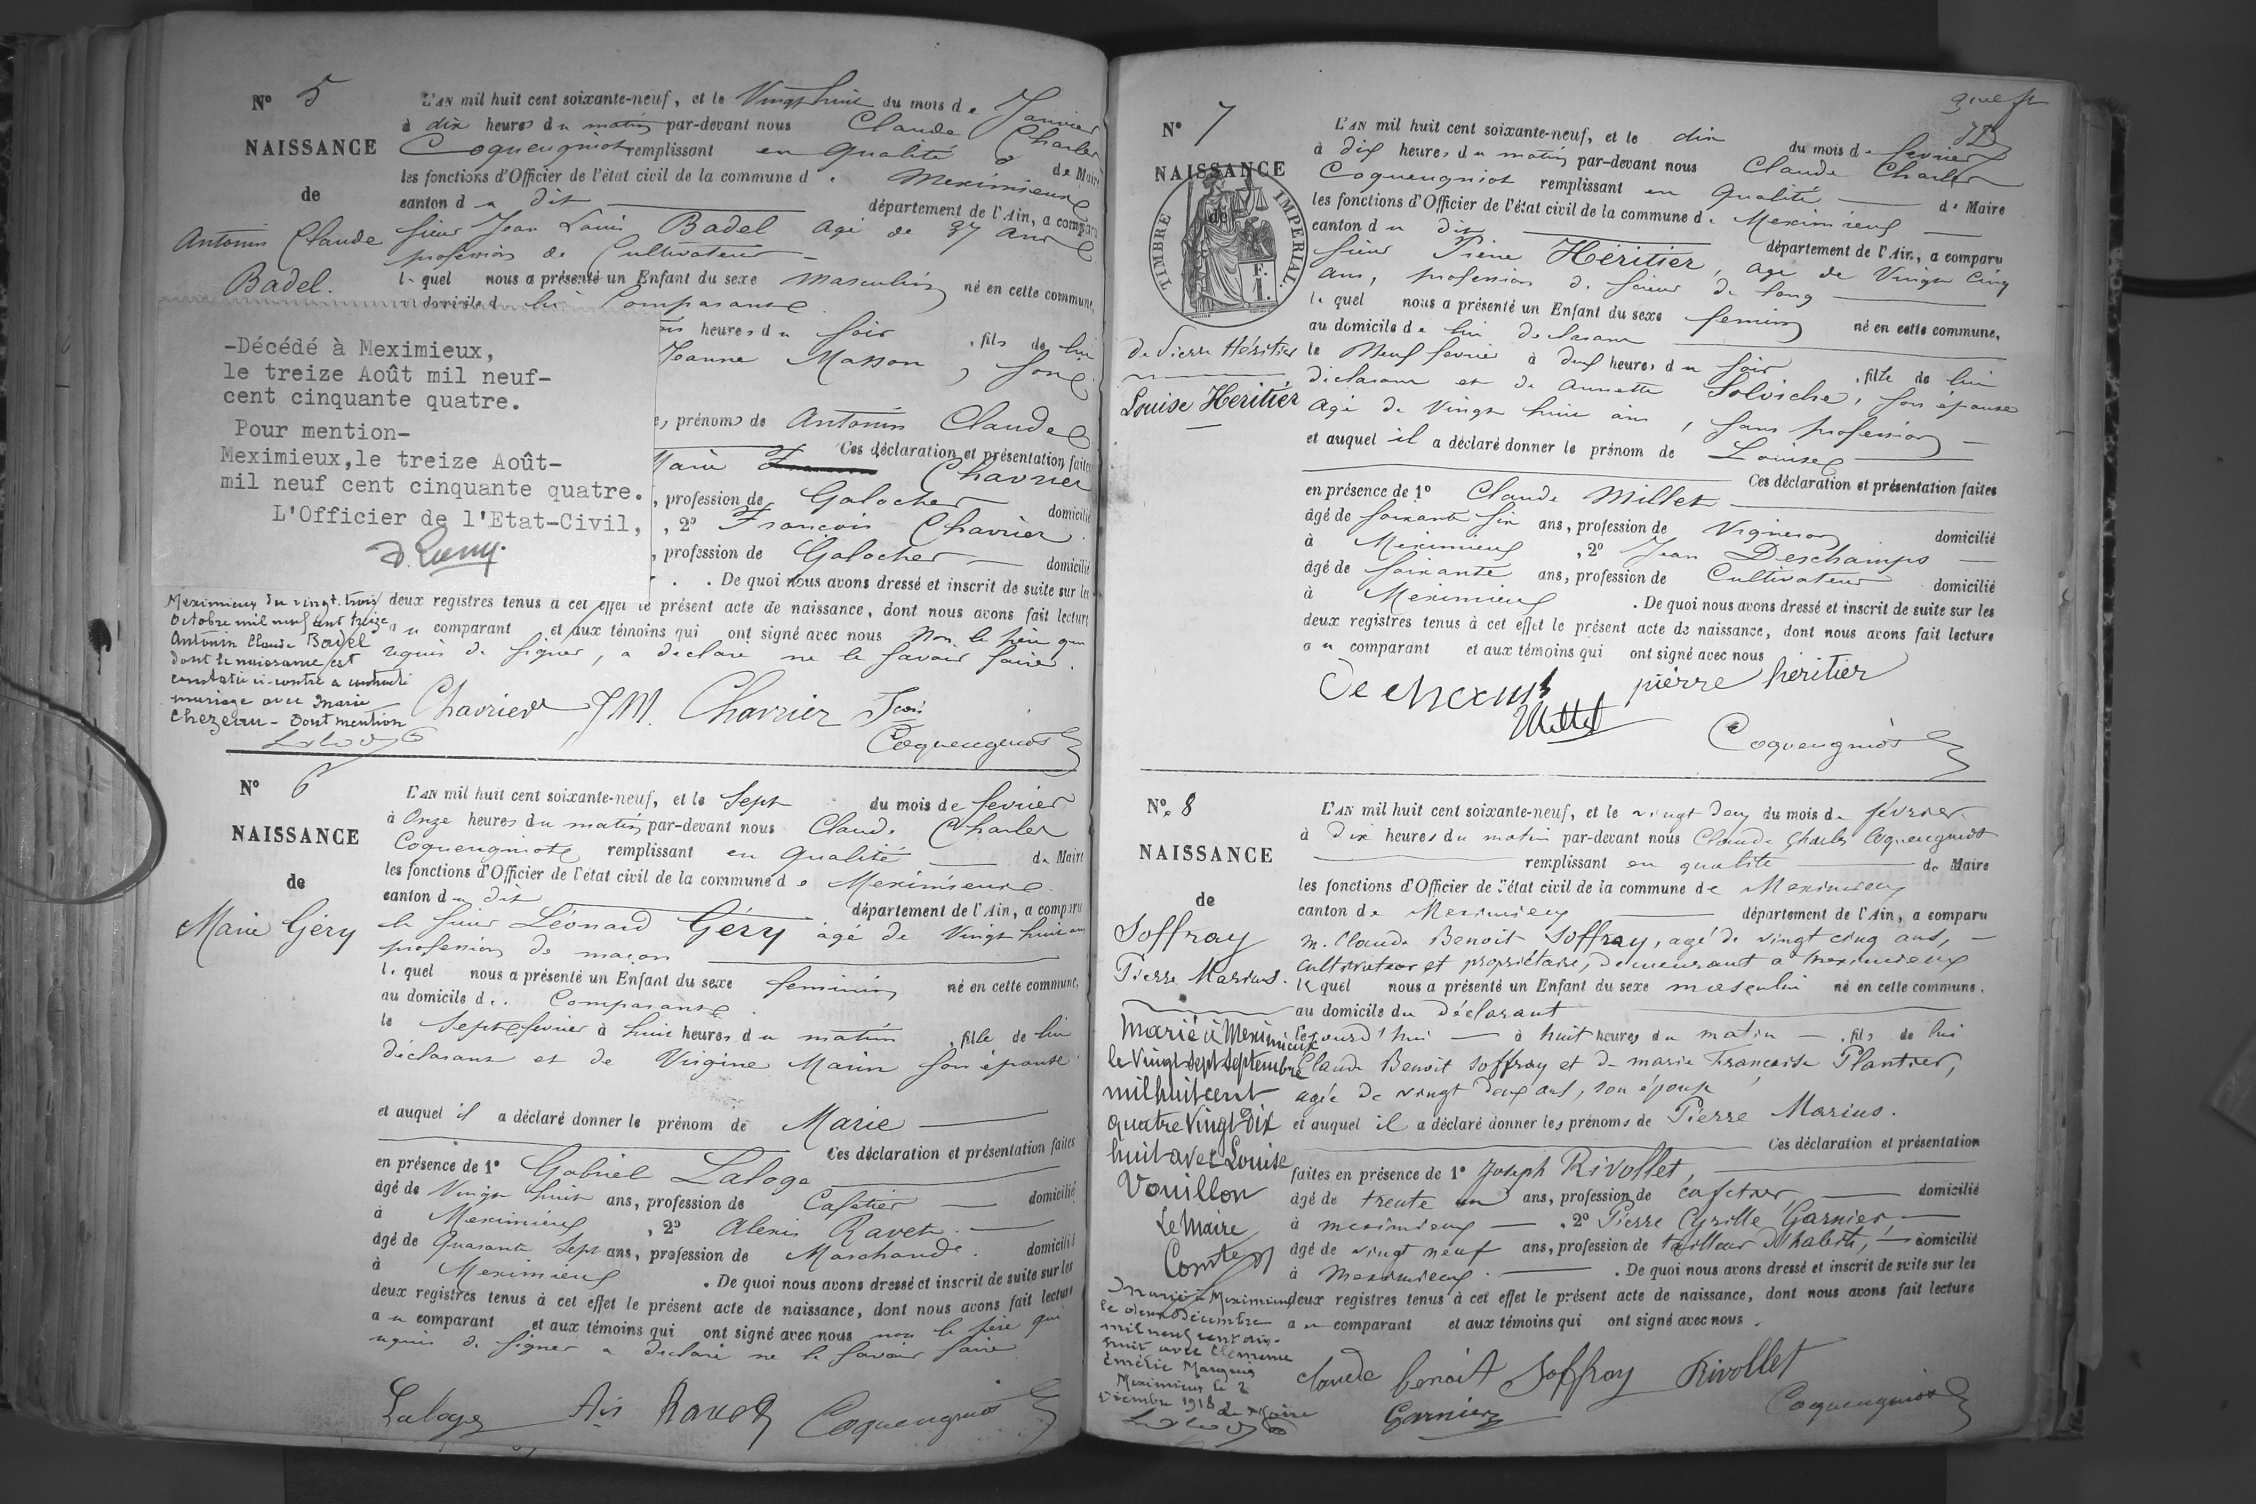 N° 5
NAISSANCE
de
Antonin Claude
Badel.
L'AN mil huit cent soixante-neuf, et le Vingt huit du mois de Janvier
à dix heures du matin par-devant nous Claude Charles
Coqueugniot remplissant en qualité de Maire
les fonctions d'Officier de l'état civil de la commune de Meximieux
canton du dit département de l'Ain, a comparu
sieur Jean Louis Badel agé de 37 ans
profession de Cultivateur
lequel nous a présenté un Enfant du sexe masculin né en cette commune,
au domicile du comparant
heures du soir, fils de lui
Jeanne Masson, son
prénoms de Antonin Claude
Ces déclaration et présentation faites
Marie Chavrier
, profession de Galocher domicilié
, 2° François Chavrier
, profession de Galocher domicilié
. De quoi nous avons dressé et inscrit de suite sur les
deux registres tenus à cet effet le présent acte de naissance, dont nous avons fait lecture
au comparant et aux témoins qui ont signé avec nous non le père qui
requis de signer, a déclaré ne le savoir faire.
Chavrier J M. Chavrier
Coqueugniot
-Décédé à Meximieux,
le treize Août mil neuf-
cent cinquante quatre.
Pour mention-
Meximieux,le treize Août-
mil neuf cent cinquante quatre.
L'Officier de l'Etat-Civil,
Meximieux du vingt-trois
octobre mil neuf cent treize
Antonin Claude Badel
dont la naissance est
constatée ci-contre a contracté
mariage avec Marie
Chezeau - Dont mention
N° 6
NAISSANCE
de
Marie Géry
L'AN mil huit cent soixante-neuf, et le Sept du mois de fevrier
à Onze heures du matin par-devant nous Claude Charles
Coqueugniot remplissant en qualité de Maire
les fonctions d'Officier de l'état civil de la commune de Meximieux
canton du dit département de l'Ain, a comparu
le sieur Léonard Géry agé de Vingt huit ans
profession de maçon
lequel nous a présenté un Enfant du sexe feminin né en cette commune,
au domicile du Comparant
le Sept fevrier à huit heures du matin, fille de lui
déclarant et de Virginie Marin son épouse
et auquel il a déclaré donner le prénom de Marie
Ces déclaration et présentation faites
en présence de 1° Gabriel Laloge
âgé de Vingt huit ans, profession de Cafetier domicilié
à Meximieux, 2° Alexis Ravet
âgé de Quarante Sept ans, profession de Marchand. domicilié
à Meximieux. De quoi nous avons dressé et inscrit de suite sur les
deux registres tenus à cet effet le présent acte de naissance, dont nous avons fait lecture
au comparant et aux témoins qui ont signé avec nous non le père qui
requis de signer a déclaré ne le savoir faire
Laloge Ravet Coqueugniot
N° 7
NAISSANCE
de
TIMBRE IMPERIAL.
de Pierre Héritier
Louise Héritier
L'AN mil huit cent soixante-neuf, et le dix du mois de fevrier
à dix heures du matin par-devant nous Claude Charles
Coqueugniot remplissant en qualité de Maire
les fonctions d'Officier de l'état civil de la commune de Meximieux
canton du dit département de l'Ain, a comparu
sieur Pierre Héritier, agé de Vingt Cinq
ans, profession de scieur de long
lequel nous a présenté un Enfant du sexe feminin né en cette commune,
au domicile de lui declarant
le Neuf fevrier à deux heures du soir, fille de lui
déclarant et de Annette Solviche, son épouse
agé de Vingt huit ans, sans profession
et auquel il a déclaré donner le prénom de Louise
Ces déclaration et présentation faites
en présence de 1° Claude Millet
âgé de soixante six ans, profession de Vigneron domicilié
à Meximieux, 2° Jean Deschamps
âgé de soixante ans, profession de Cultivateur domicilié
à Meximieux. De quoi nous avons dressé et inscrit de suite sur les
deux registres tenus à cet effet le présent acte de naissance, dont nous avons fait lecture
au comparant et aux témoins qui ont signé avec nous
pierre heritier
Millet
Coqueugniot
N° 8
NAISSANCE
de
Soffray
Pierre Marius.
L'AN mil huit cent soixante-neuf, et le vingt deux du mois de février
à Dix heures du matin par-devant nous Claude Charles Coqueugniot
remplissant en qualité de Maire
les fonctions d'Officier de l'état civil de la commune de Meximieux
canton de Meximieux département de l'Ain, a comparu
M. Claude Benoit Soffray, agé de vingt cinq ans,
cultivateur et propriétaire, demeurant a meximieux
lequel nous a présenté un Enfant du sexe masculin né en cette commune.
au domicile du déclarant
cejourd'hui à huit heures du matin, fils de lui
Claude Benoit Soffray et de marie Françoise Plantier,
agée de vingt deux ans, son épouse
et auquel il a déclaré donner les prénoms de Pierre Marius.
Ces déclaration et présentation
faites en présence de 1° Joseph Rivollet,
âgé de trente un ans, profession de cafetier, domicilié
à meximieux, 2° Pierre Cyrille Garnier,
âgé de vingt neuf ans, profession de tailleur d'habits, domicilié
à Meximieux. De quoi nous avons dressé et inscrit de suite sur les
deux registres tenus à cet effet le présent acte de naissance, dont nous avons fait lecture
au comparant et aux témoins qui ont signé avec nous.
claude benoit Soffray Rivollet
Garnier Coqueugniot
Marié à Meximieux
le vingt sept septembre
mil huit cent
quatre vingt Dix
huit avec Louise
Vouillon
Le Maire
Marié à Meximieux
le deux Décembre
mil neuf cent dix-
huit avec Clémence
Emélie
Meximieux le 2
Décembre 1918 le Maire